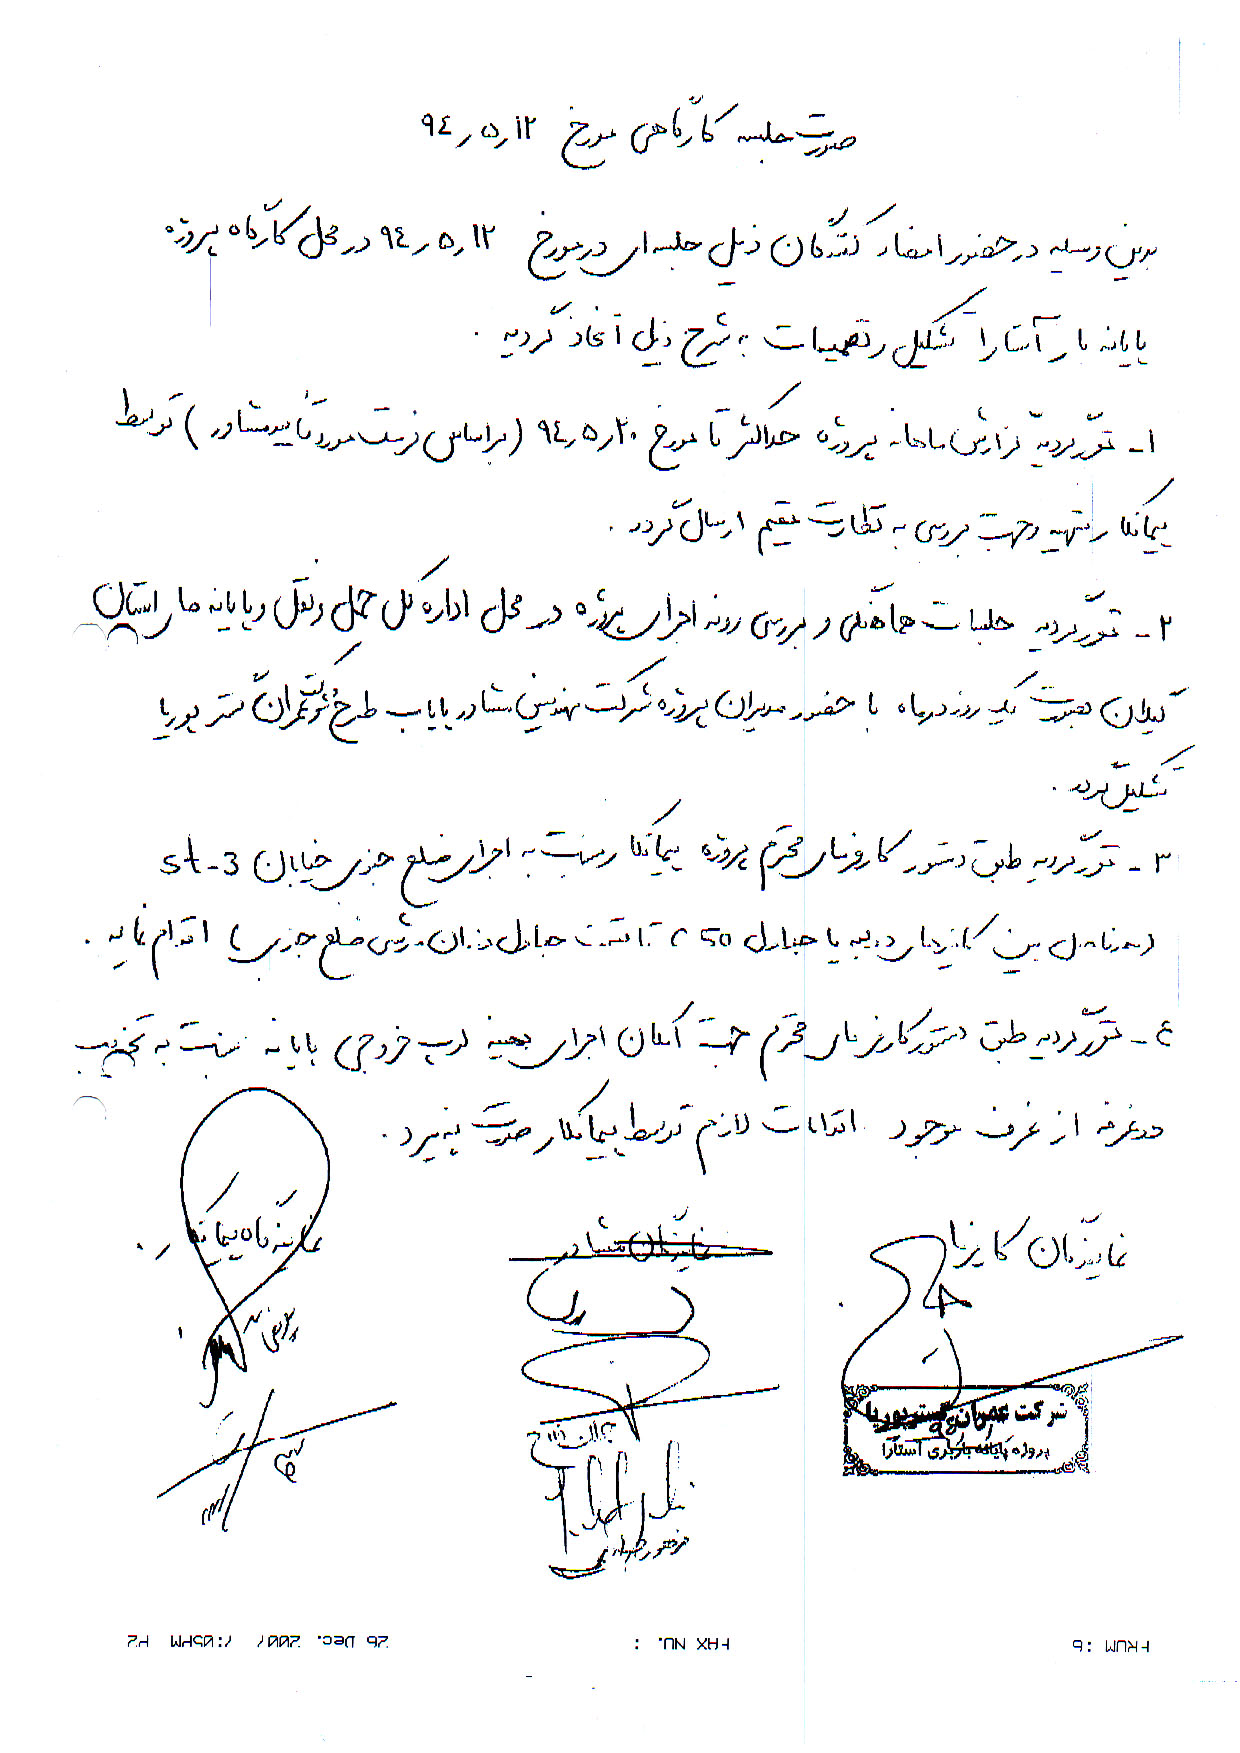 صورت جلسه کارگاهی مورخ ۹۴٫۵٫۱۲
بدین وسیله در حضور امضاء کنندگان ذیل جلسه ای در مورخ ۹۴٫۵٫۱۲ در محل کارگاه پروژه
پایانه بار آستارا تشکیل و تصمیمات به شرح ذیل اتخاذ گردید .
۱- مقرر گردید گزارش ماهانه پروژه حداکثر تا مورخ ۹۴٫۵٫۲۰ (براساس فرمت مورد تأیید مشاور) توسط
پیمانکار تهیه و جهت بررسی به نظارت مقیم ارسال گردد .
۲- مقرر گردید جلسات هماهنگی و بررسی روند اجرای پروژه در محل اداره کل حمل و نقل و پایانه های استان
گیلان بصورت یک روز در ماه با حضور مدیران پروژه شرکت مهندسین مشاور پایاب طرح و شرکت عمران گستر پوریا
تشکیل گردد .
۳- مقرر گردید طبق دستور کارفرمای محترم پروژه پیمانکار نسبت به اجرای ضلع جنوبی خیابان st-3
بین جداول تا پشت جداول ضلع جنوبی) اقدام نماید .
۴- مقرر گردید طبق دستور کارفرمای محترم جهت امکان اجرای بهینه گیت خروجی پایانه نسبت به تخریب
دو غرفه از غرف موجود اقدامات لازم توسط پیمانکار صورت پذیرد .
نمایندگان کارفرما
نمایندگان مشاور
نماینده پیمانکار
شرکت عمران گستر پوریا
پروژه پایانه باربری آستارا
FROM :
FAX NO. :
26 Dec. 2007 7:05PM P2